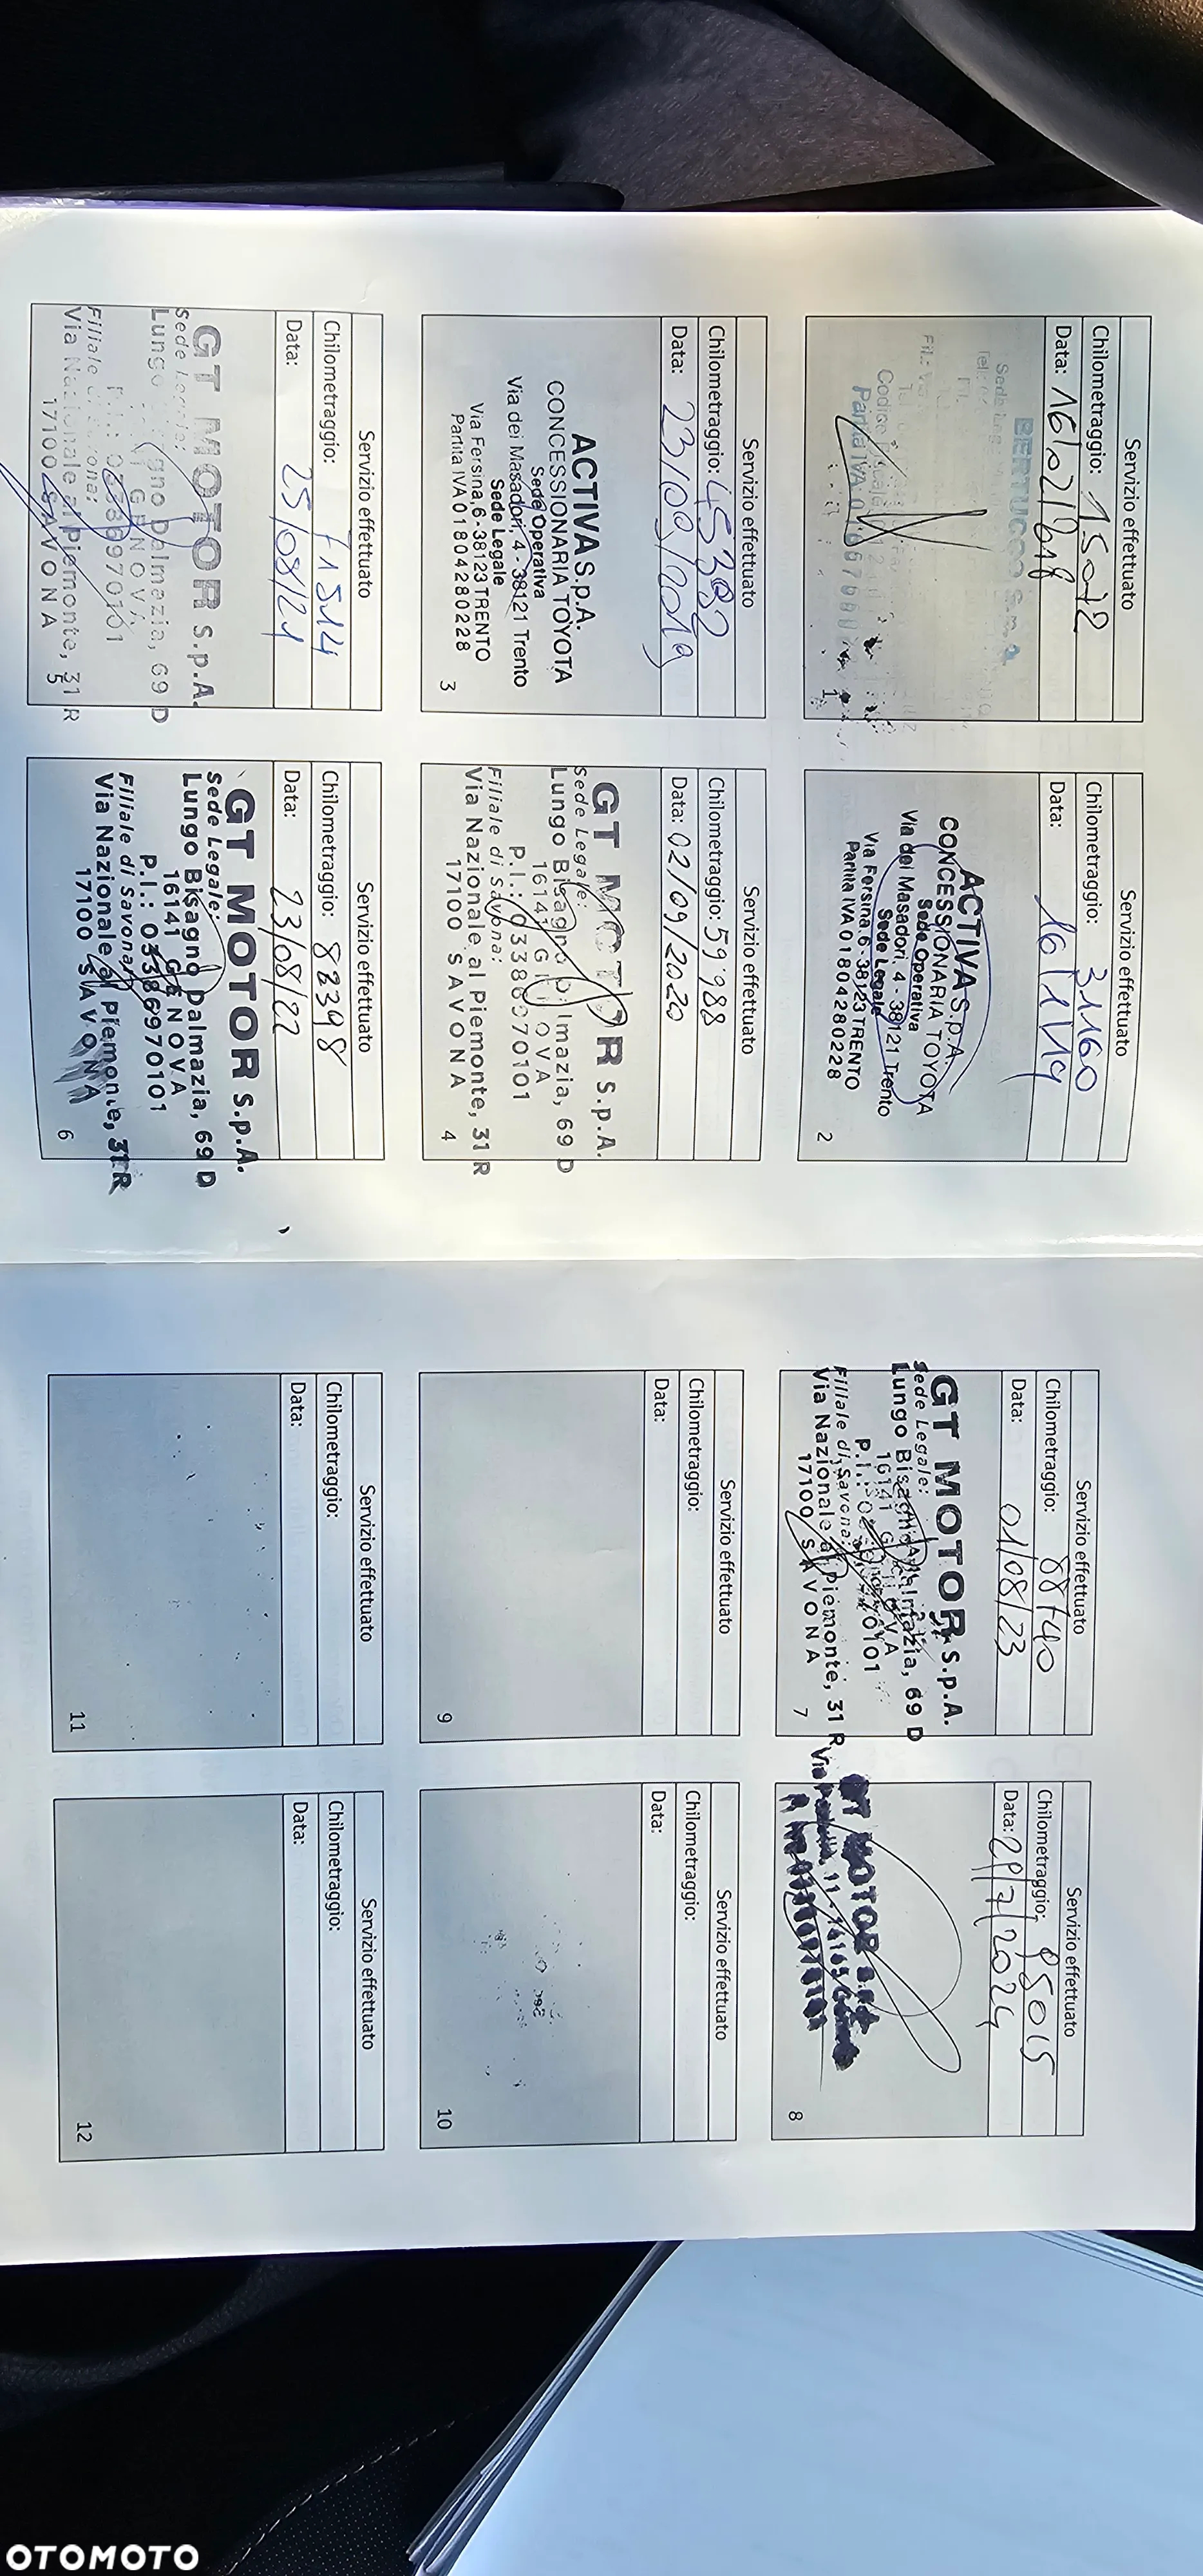 Servizio effettuato
Chilometraggio: 15072
Data: 16/02/2018
BERTUCCO S.p.A.
Partita IVA
1
Servizio effettuato
Chilometraggio: 31160
Data: 16/1/19
ACTIVA S.p.A.
CONCESSIONARIA TOYOTA
Sede Operativa
Via dei Masadori, 4 - 38121 Trento
Sede Legale
Via Fersina, 6 - 38123 TRENTO
Partita IVA 01804280228
2
Servizio effettuato
Chilometraggio: 45392
Data: 23/09/2019
ACTIVA S.p.A.
CONCESSIONARIA TOYOTA
Sede Operativa
Via dei Masadori, 4 - 38121 Trento
Sede Legale
Via Fersina, 6 - 38123 TRENTO
Partita IVA 01804280228
3
Servizio effettuato
Chilometraggio: 59'988
Data: 02/09/2020
GT MOTOR S.p.A.
Sede Legale:
Lungo Bisagno Dalmazia, 69 D
16141 GENOVA
P.I.: 03386970101
Filiale di Savona:
Via Nazionale al Piemonte, 31 R
17100 SAVONA
4
Servizio effettuato
Chilometraggio: 71514
Data: 25/08/21
GT MOTOR S.p.A.
Sede Legale:
Lungo Bisagno Dalmazia, 69 D
GENOVA
P.I.: 03386970101
Filiale di Savona:
Via Nazionale al Piemonte, 31 R
17100 SAVONA
5
Servizio effettuato
Chilometraggio: 82398
Data: 23/08/22
GT MOTOR S.p.A.
Sede Legale:
Lungo Bisagno Dalmazia, 69 D
16141 GENOVA
P.I.: 03386970101
Filiale di Savona:
Via Nazionale al Piemonte, 31 R
17100 SAVONA
6
Servizio effettuato
Chilometraggio: 88740
Data: 01/08/23
GT MOTOR S.p.A.
Sede Legale:
Lungo Bisagno Dalmazia, 69 D
16141 GENOVA
P.I.: 03386970101
Filiale di Savona:
Via Nazionale al Piemonte, 31 R
17100 SAVONA
7
Servizio effettuato
Chilometraggio: 95015
Data: 29/7/2024
GT MOTOR
8
Servizio effettuato
Chilometraggio:
Data:
9
Servizio effettuato
Chilometraggio:
Data:
10
Servizio effettuato
Chilometraggio:
Data:
11
Servizio effettuato
Chilometraggio:
Data:
12
OTOMOTO